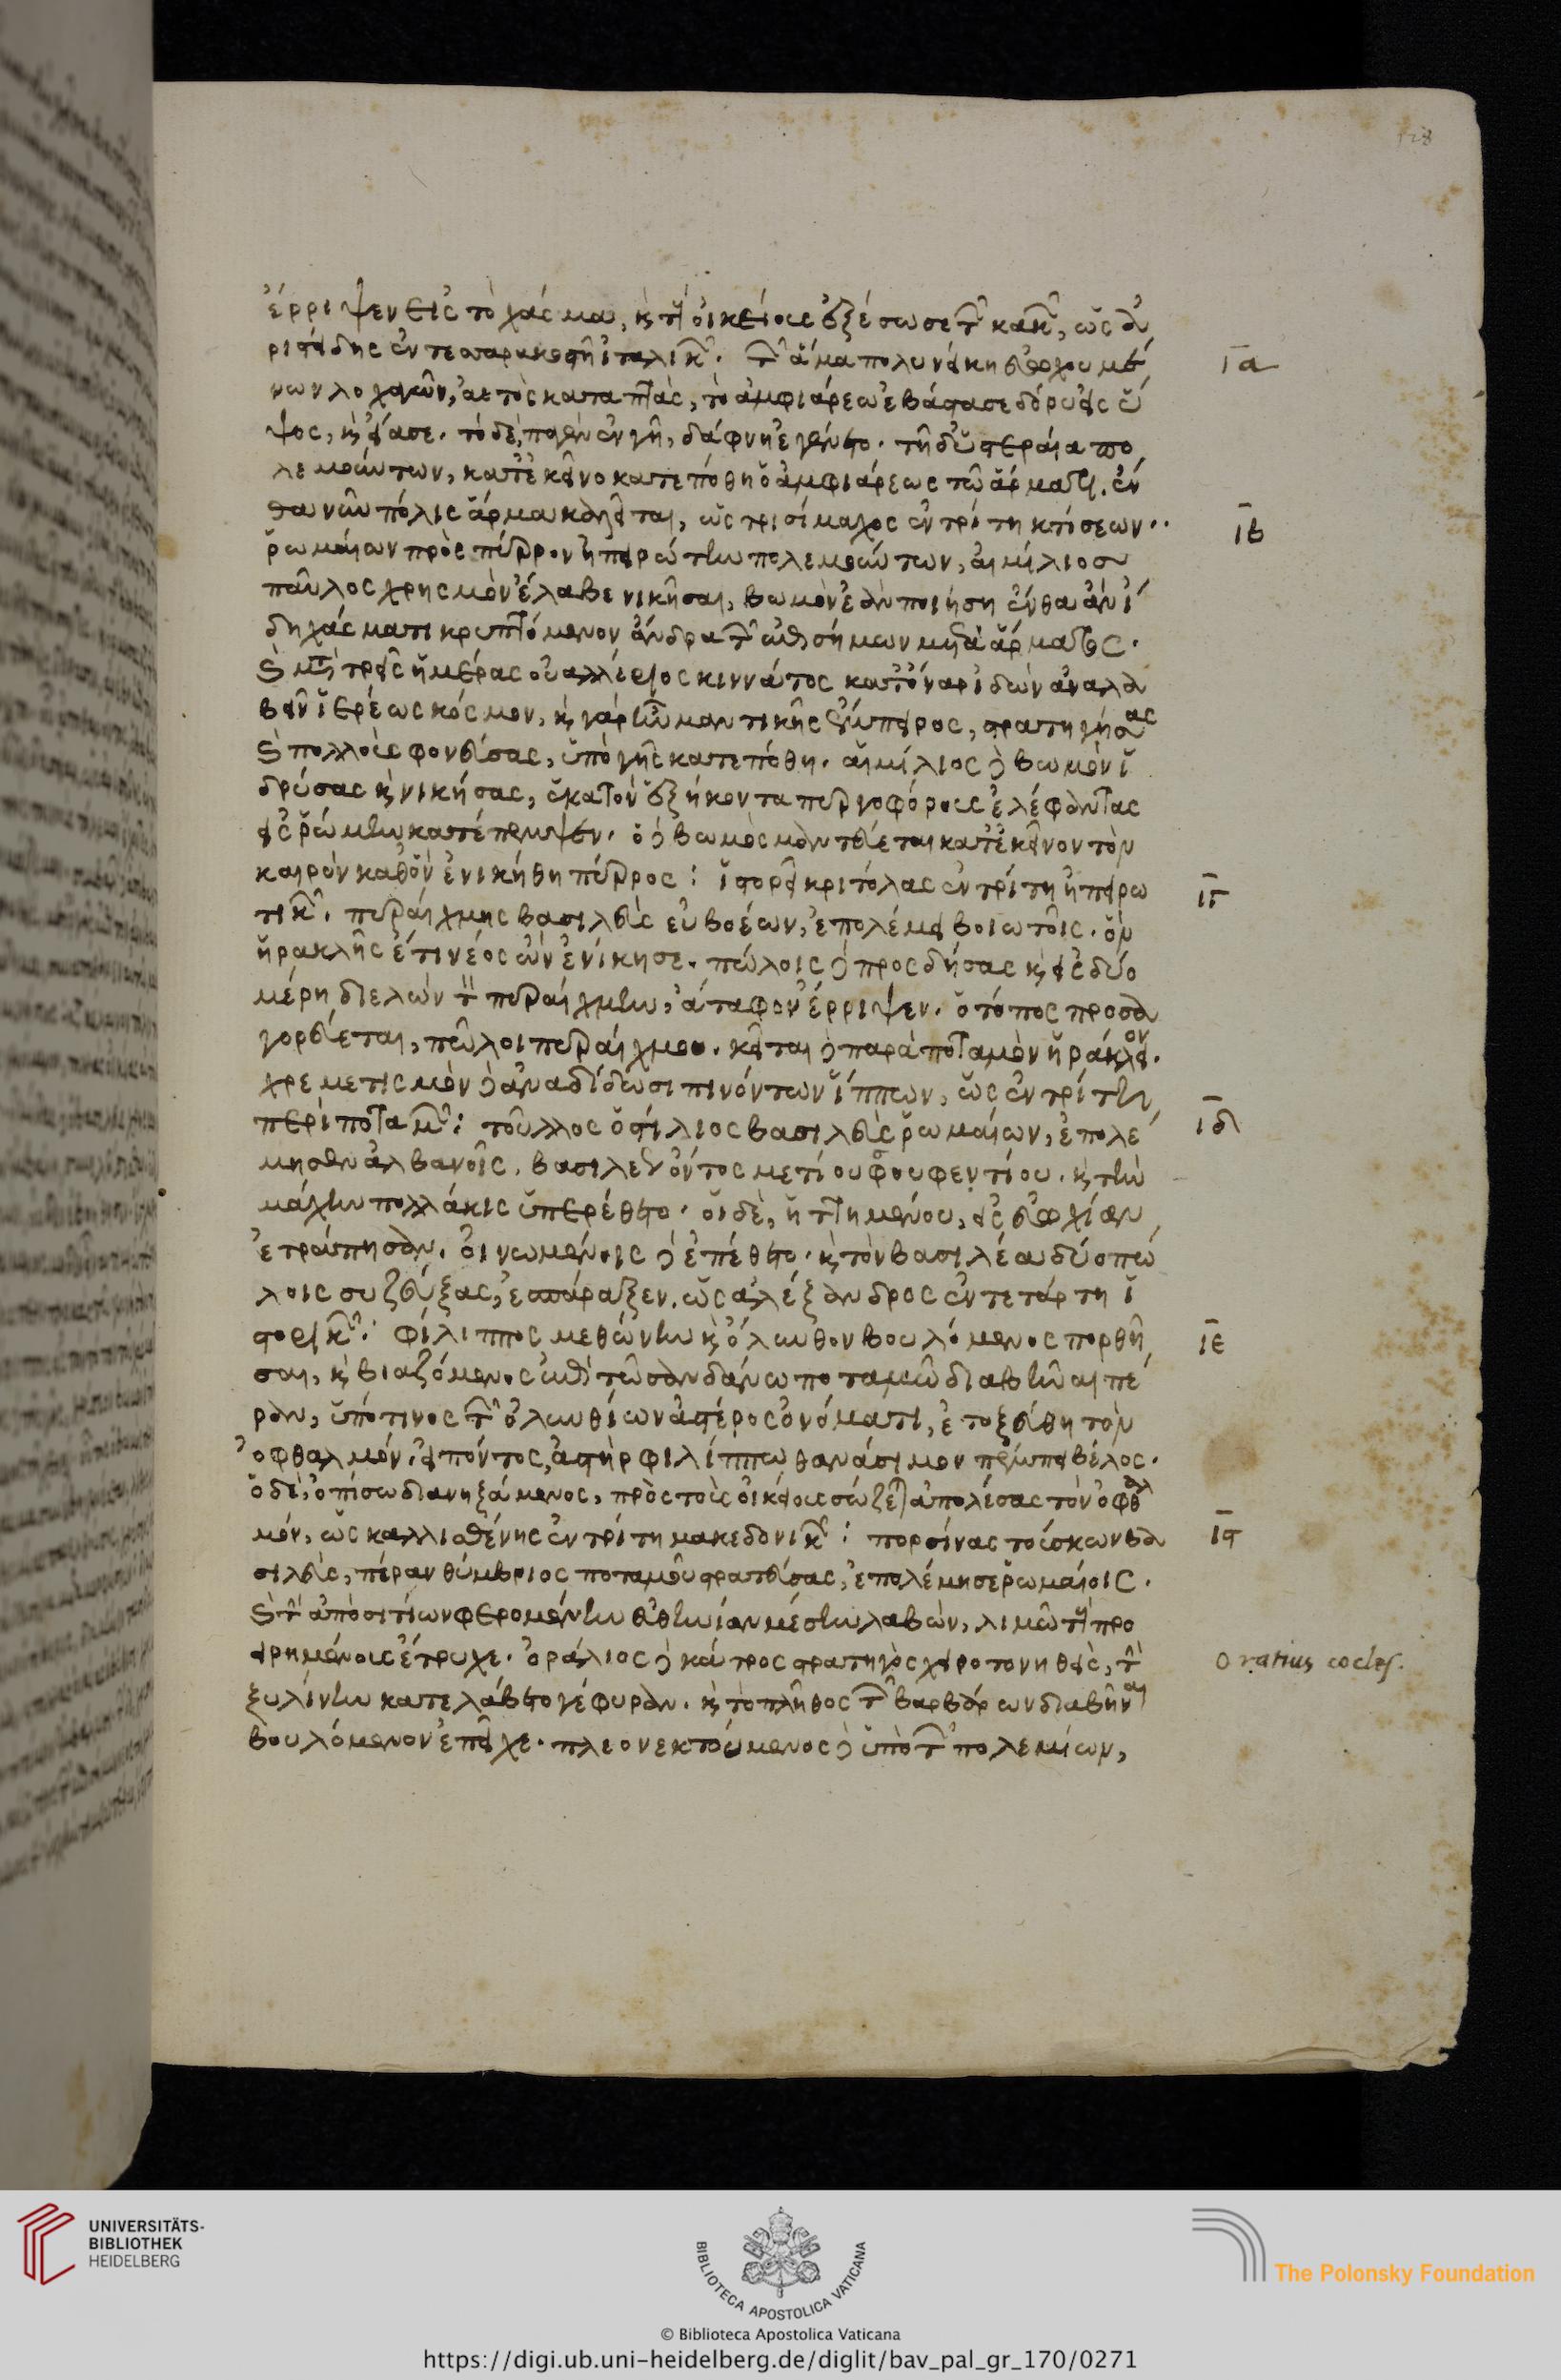 128
ἔρριψεν εἰς τὸ χάσμα, καὶ τοὺς οἰκείους ἐξέσωσε τῶν κακῶν, ὡς ἀ
ριστείδης ἐν τεσσαρακοστῆ ἰταλικῶν. τῶν ἅμα πολυνείκη εὐωχουμέ
νων λοχαγῶν, ἀετὸς καταπτὰς, τὸ ἀμφιάρεω ἐβάστασε δόρυ εἰς ὕ
ψος, καὶ εἴασε. τὸ δὲ, παγὲν ἐν γῆ, δάφνη ἐγένετο. τῆ δ' ὑστεραία πο
λεμούντων, κατ' ἐκεῖνο κατεπόθη ὁ ἀμφιάρεως τῶ ἅρματι. ἔν
θα νῦν πόλις ἅρμα καλεῖται, ὡς τρισίμαχος ἐν τρίτη κτίσεων..
ῥωμαίων πρὸς πύρρον ἠπειρώτην πολεμούντων, αἰμίλιος
παῦλος χρησμὸν ἔλαβε νικῆσαι, βωμὸν ἐὰν ποιήση ἔνθα ἂν ἴ
δη χάσματι κρυπτόμενον ἄνδρα τῶν ἐπισήμων μετὰ ἅρματος.
καὶ μετὰ τρεῖς ἡμέρας οὐαλλέριος κιννάτος κατ' ὄναρ ἰδὼν ἀναλα
βεῖν ἱερέως κόσμον, καὶ γὰρ ἦν μαντικῆς ἔμπειρος, στρατηγήσας
καὶ πολλοὺς φονεύσας, ὑπὸ γῆς κατεπόθη. αἰμίλιος δὲ βωμὸν ἱ
δρύσας καὶ νικήσας, ἑκατὸν ἑξήκοντα πυργοφόρους ἐλέφαντας
εἰς ῥώμην κατέπεμψεν. ὁ δὲ βωμὸς μαντεύεται κατ' ἐκεῖνον τὸν
καιρὸν καθ' ὃν ἐνικήθη πύρρος: ἱστορεῖ κριτόλας ἐν τρίτη ἠπειρω
τικῶν. πυραίχμης βασιλεὺς εὐβοέων, ἐπολέμει βοιωτοῖς. ὃν
ἡρακλῆς ἔτι νέος ὢν ἐνίκησε. πώλοις δὲ προσδήσας καὶ εἰς δύο
μέρη διελὼν τὸν πυραίχμην, ἄταφον ἔρριψεν. ὁ τόπος προσα
γορεύεται, πῶλοι πυραίχμου. κεῖται δὲ παρὰ ποταμὸν ἡράκλειον.
χρεμετισμὸν δὲ ἀναδίδωσι πινόντων ἵππων, ὡς ἐν τρίτη
περὶ ποταμῶν: τοῦλλος ὁστίλιος βασιλεὺς ῥωμαίων, ἐπολέ
μησεν ἀλβανοῖς. βασιλεύοντος μετίου φουφεντίου. καὶ τὴν
μάχην πολλάκις ὑπερέθετο. οἱ δὲ, ἡττημένου, εἰς εὐωχίαν
ἐτράπησαν. οἰνωμένοις δὲ ἐπέθετο. καὶ τὸν βασιλέα δύο πώ
λοις συζεύξας, ἐσπάραξεν. ὡς ἀλέξανδρος ἐν τετάρτη ἱ
στορικῶν: φίλιππος μεθώνην καὶ ὄλυνθον βουλόμενος πορθῆ
σαι, καὶ βιαζόμενος ἐπὶ τῶ σανδάνω ποταμῶ διαβῆναι πέ
ραν, ὑπό τινος τῶν ὀλυνθίων ἀστέρος ὀνόματι, ἐτοξεύθη τὸν
ὀφθαλμόν. εἰπόντος, ἀστὴρ φιλίππω θανάσιμον πέμπει βέλος.
ὁ δὲ, ὀπίσω διανηξάμενος, πρὸς τοὺς οἰκείους σώζεται ἀπολέσας τὸν ὀφθαλ
μόν, ὡς καλλισθένης ἐν τρίτη μακεδονικῶν: πορσίνας τούσκων βα
σιλεὺς, πέραν θύμβριος ποταμοῦ στρατεύσας, ἐπολέμησε ῥωμαίοις.
καὶ τὴν ἀπὸ σιτίων φερομένην εὐθηνίαν μέσην λαβὼν, λιμῶ τοὺς προ
ειρημένους ἔτρυχε. ὁράτιος δὲ κάτρος στρατηγὸς χειροτονηθεὶς, τὴν
ξυλίνην κατελάβετο γέφυραν. καὶ τὸ πλῆθος τῶν βαρβάρων διαβῆναι
βουλόμενον ἐπεῖχε. πλεονεκτούμενος δὲ ὑπὸ τῶν πολεμίων,
ια
ιβ
ιγ
ιδ
ιε
ις
Oratius cocles.
UNIVERSITÄTS-
BIBLIOTHEK
HEIDELBERG
BIBLIOTECA APOSTOLICA VATICANA
© Biblioteca Apostolica Vaticana
The Polonsky Foundation
https://digi.ub.uni-heidelberg.de/diglit/bav_pal_gr_170/0271